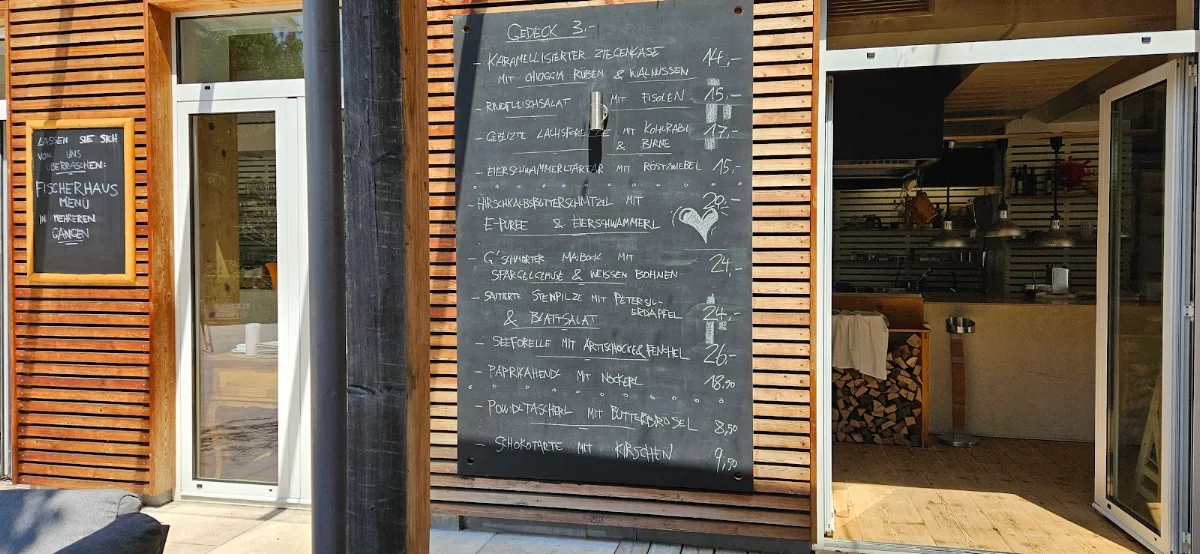 LASSEN SIE SICH
VON UNS
ÜBERRASCHEN:
FISCHERHAUS
MENÜ
IN MEHREREN
GÄNGEN
GEDECK 3,-
- KARAMELLISIERTER ZIEGENKÄSE 14,-
MIT CHIOGGIA RÜBEN & WALNÜSSEN
- RINDFLEISCHSALAT MIT FISOLEN 15,-
- GEBEIZTE LACHSFORE MIT KOHLRABI 17,-
& BIRNE
- EIERSCHWAMMERLTARTAR MIT RÖSTZWIEBEL 15,-
- HIRSCHKALBSBUTTERSCHNITZEL MIT
E-PÜREE & EIERSCHWAMMERL
- G'SCHMORTER MAIBOCK MIT 24,-
SPARGELGEMÜSE & WEISSEN BOHNEN
- SAUTIERTE STEINPILZE MIT PETERSIL-
ERDÄPFEL 24,-
& BLATTSALAT
- SEEFORELLE MIT ARTISCHOCKE & FENCHEL 26,-
- PAPRIKAHENDL MIT NOCKERL 18,50
- POWIDLTASCHERL MIT BUTTERBRÖSEL 8,50
- SCHOKOTARTE MIT KIRSCHEN 9,50